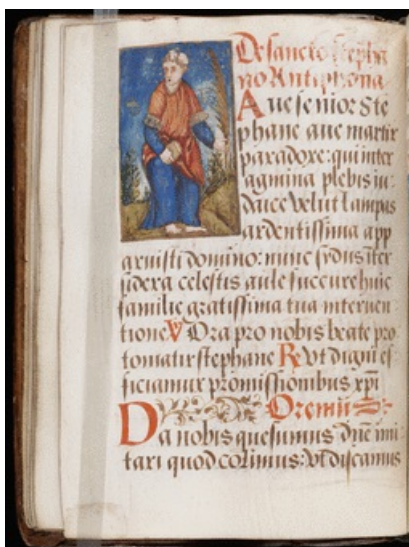 De sancto stepha
no Antiphona
Aue senior ste
phane aue martir
paradoxe: qui inter
agmina plebis iu
daice velut lampas
ardentissima app
aruisti domino: nunc sidus iter
sidera celestis aule succurre huic
familie gratissima tua interuen
tione V Ora pro nobis beate pro
tomatir stephane R Vt digni ef
ficiamur promissionibus xpi
Oremus
Da nobis quesumus dne imi
tari quod colimus: vt discamus